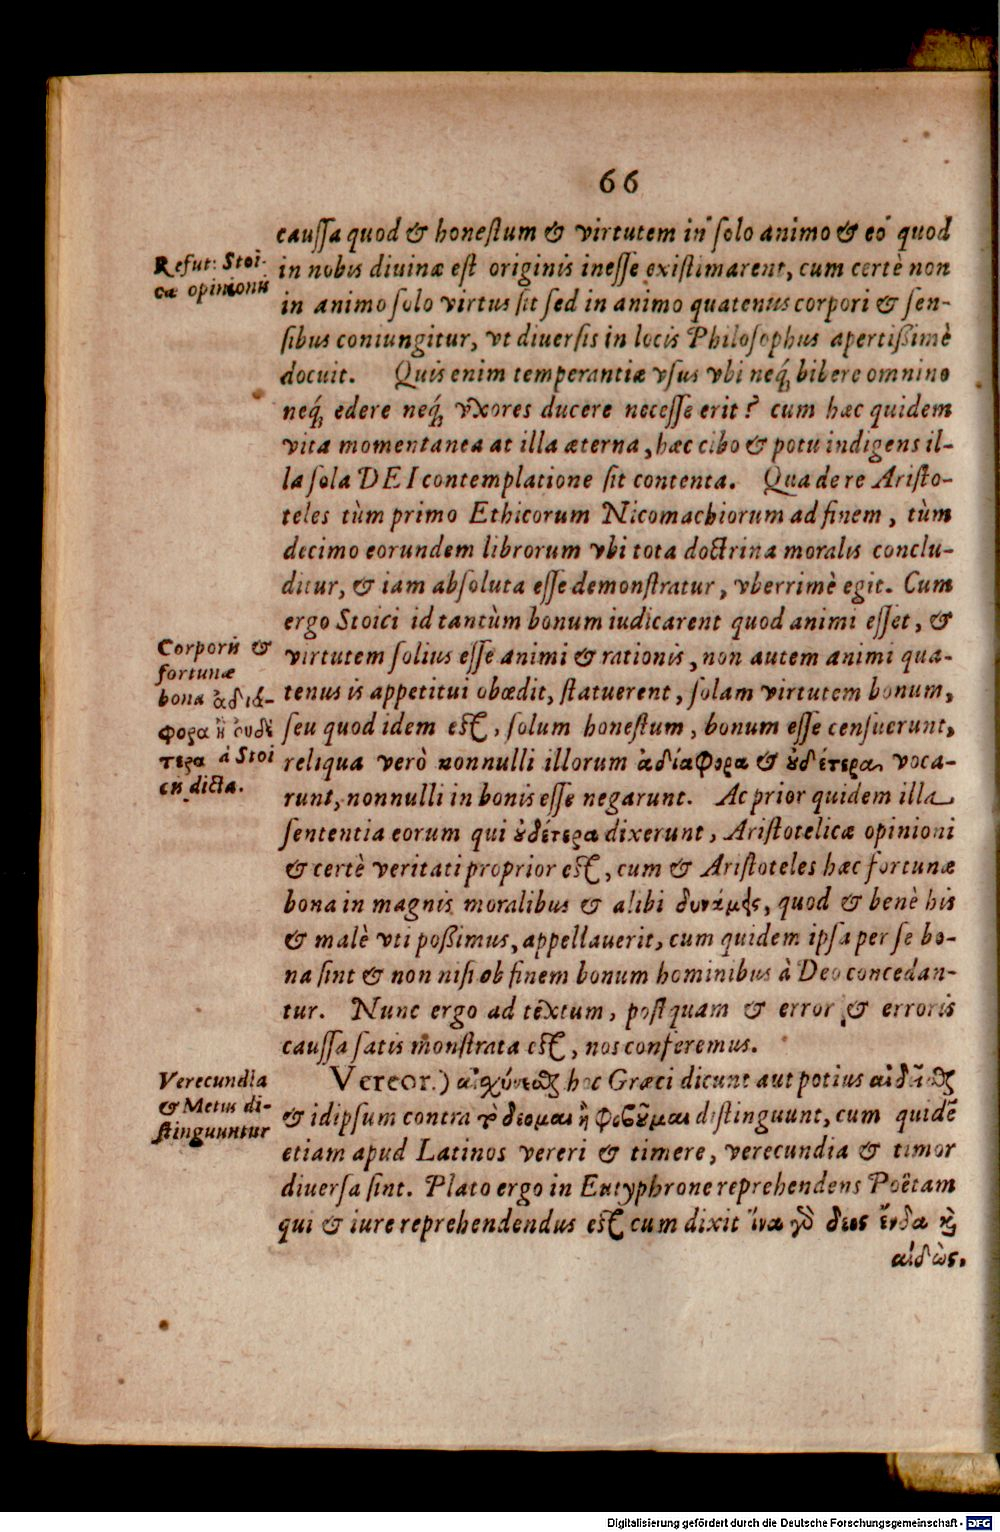 66
caussa quod & honestum & virtutem in solo animo & eo quod
in nobis diuinæ est originis inesse existimarent, cum certè non
in animo solo virtus sit sed in animo quatenus corpori & sen-
sibus coniungitur, vt diuersis in locis Philosophus apertißimè
docuit. Quis enim temperantiæ vsus vbi neq́; bibere omnino
neq́; edere neq́; vxores ducere necesse erit? cum hæc quidem
vita momentanea at illa æterna, hæc cibo & potu indigens il-
la sola DEI contemplatione sit contenta. Qua de re Aristo-
teles tùm primo Ethicorum Nicomachiorum ad finem, tùm
decimo eorundem librorum vbi tota doctrina moralis conclu-
ditur, & iam absoluta esse demonstratur, vberrimè egit. Cum
ergo Stoici id tantùm bonum iudicarent quod animi esset, &
virtutem solius esse animi & rationis, non autem animi qua-
tenus is appetitui obœdit, statuerent, solam virtutem bonum,
seu quod idem est, solum honestum, bonum esse censuerunt,
reliqua verò nonnulli illorum ἀδιάφορα & ȣ̓δέτερα voca-
runt, nonnulli in bonis esse negarunt. Ac prior quidem illa
sententia eorum qui ȣ̓δέτερα dixerunt, Aristotelicæ opinioni
& certè veritati proprior est, cum & Aristoteles hæc fortunæ
bona in magnis moralibus & alibi δυνάμεις, quod & benè his
& malè vti poßimus, appellauerit, cum quidem ipsa per se bo-
na sint & non nisi ob finem bonum hominibus à Deo concedan-
tur. Nunc ergo ad textum, postquam & error & erroris
caussa satis monstrata est, nos conferemus.
Vereor.) αἰσχύνεσθαι hoc Græci dicunt aut potius αἰδεῖσθαι
& idipsum contra τὸ δέομαι ἢ φοβοῦμαι distinguunt, cum quidē
etiam apud Latinos vereri & timere, verecundia & timor
diuersa sint. Plato ergo in Eutyphrone reprehendens Poëtam
qui & iure reprehendendus est cum dixit ἵνα γὸ δέος ἔνθα καὶ
αἰδὼς.
Refut: Stoi-
cæ opinionis
Corporis &
fortunæ
bona ἀδιά-
φορα ἢ οὐδέ
τερα á Stoi
cis dicta.
Verecundia
& Metus di-
stinguuntur
Digitalisierung gefördert durch die Deutsche Forschungsgemeinschaft - DFG